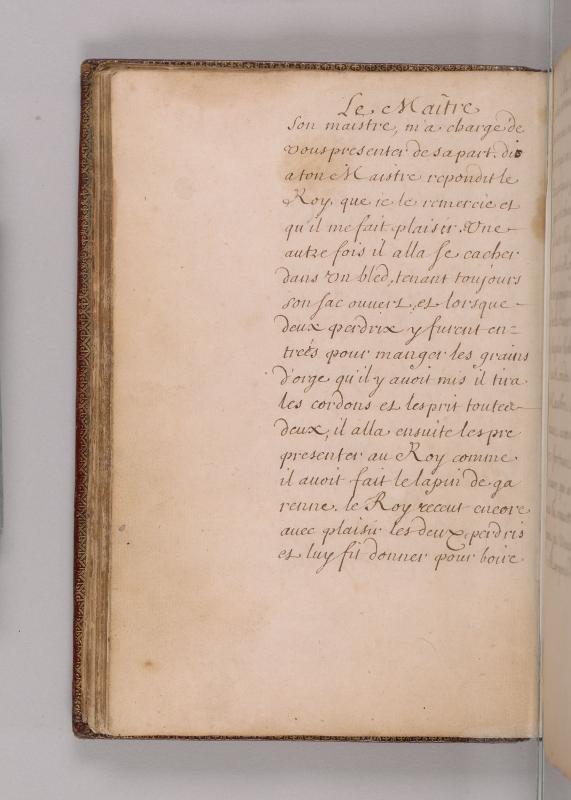 Le Maître
Son maistre, m'a chargé de
vous presenter de sa part. dis
a ton Maistre repondit le
Roy, que ie le remercie et
qu'il me fait plaisir. Une
autre fois il alla se cacher
dans un bled, tenant toujours
son sac ouvert, et lorsque
deux perdrix y furent en=
treés pour manger les grains
d'orge qu'il y avoit mis il tira
les cordons et les prit toutes
deux, il alla ensuite les pre
presenter au Roy comme
il avoit fait le lapin de ga
renne. le Roy receut encore
avec plaisir les deux perdris
et luy fit donner pour boire